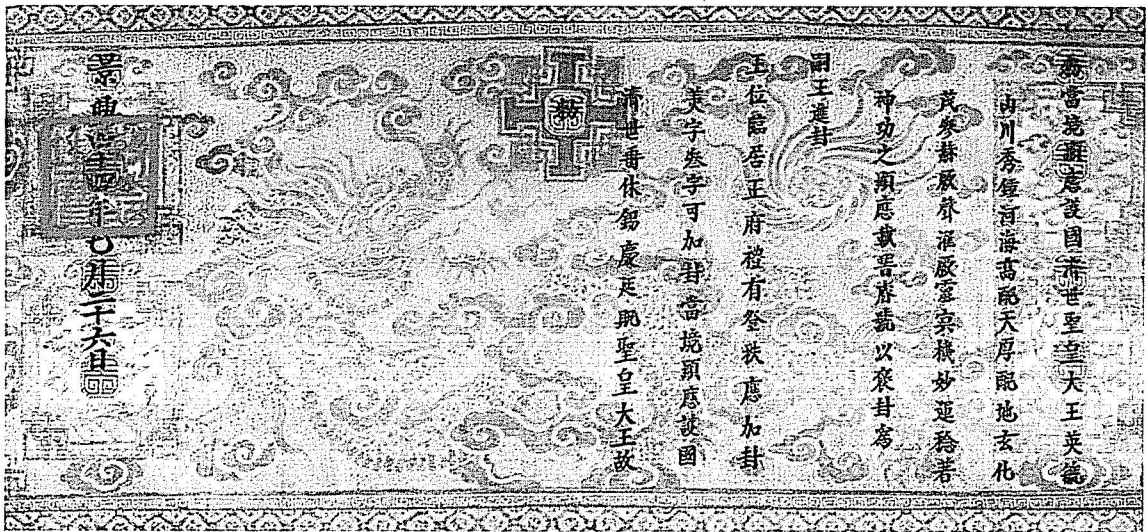 敕當境顯應護國濟世聖皇大王英毓
山川秀鐘河海高配天厚配地玄化
茂參赫厥聲濯厥靈冥機妙運稔著
神功之顯應載號以褒封為
嗣王進封
王位臨居王府禮有登秩應加封
美字叁字可加封當境顯應護國
濟世垂休錫慶延貺聖皇大王故
敕
景興四十四年七月二十六日